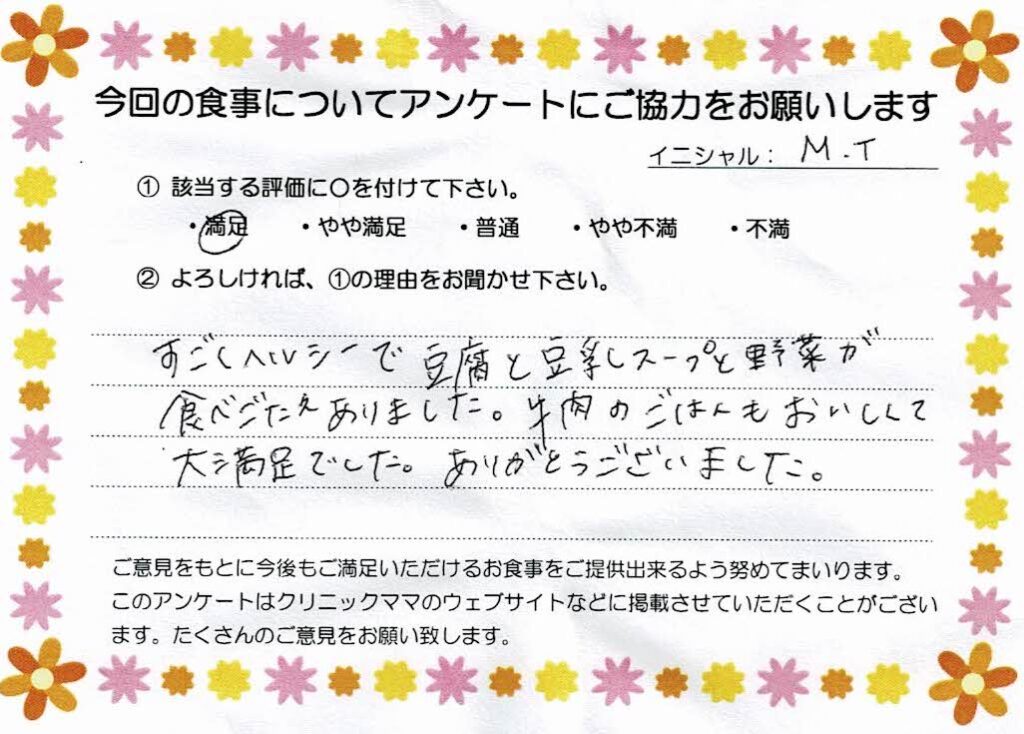 今回の食事についてアンケートにご協力をお願いします
イニシャル： M.T
① 該当する評価に〇を付けて下さい。
・満足 ・やや満足 ・普通 ・やや不満 ・不満
② よろしければ、①の理由をお聞かせ下さい。
すごくヘルシーで豆腐と豆乳しスープと野菜が
食べごたえありました。牛肉のごはんもおいしくて
大満足でした。ありがとうございました。
ご意見をもとに今後もご満足いただけるお食事をご提供出来るよう努めてまいります。
このアンケートはクリニックママのウェブサイトなどに掲載させていただくことがござい
ます。たくさんのご意見をお願い致します。